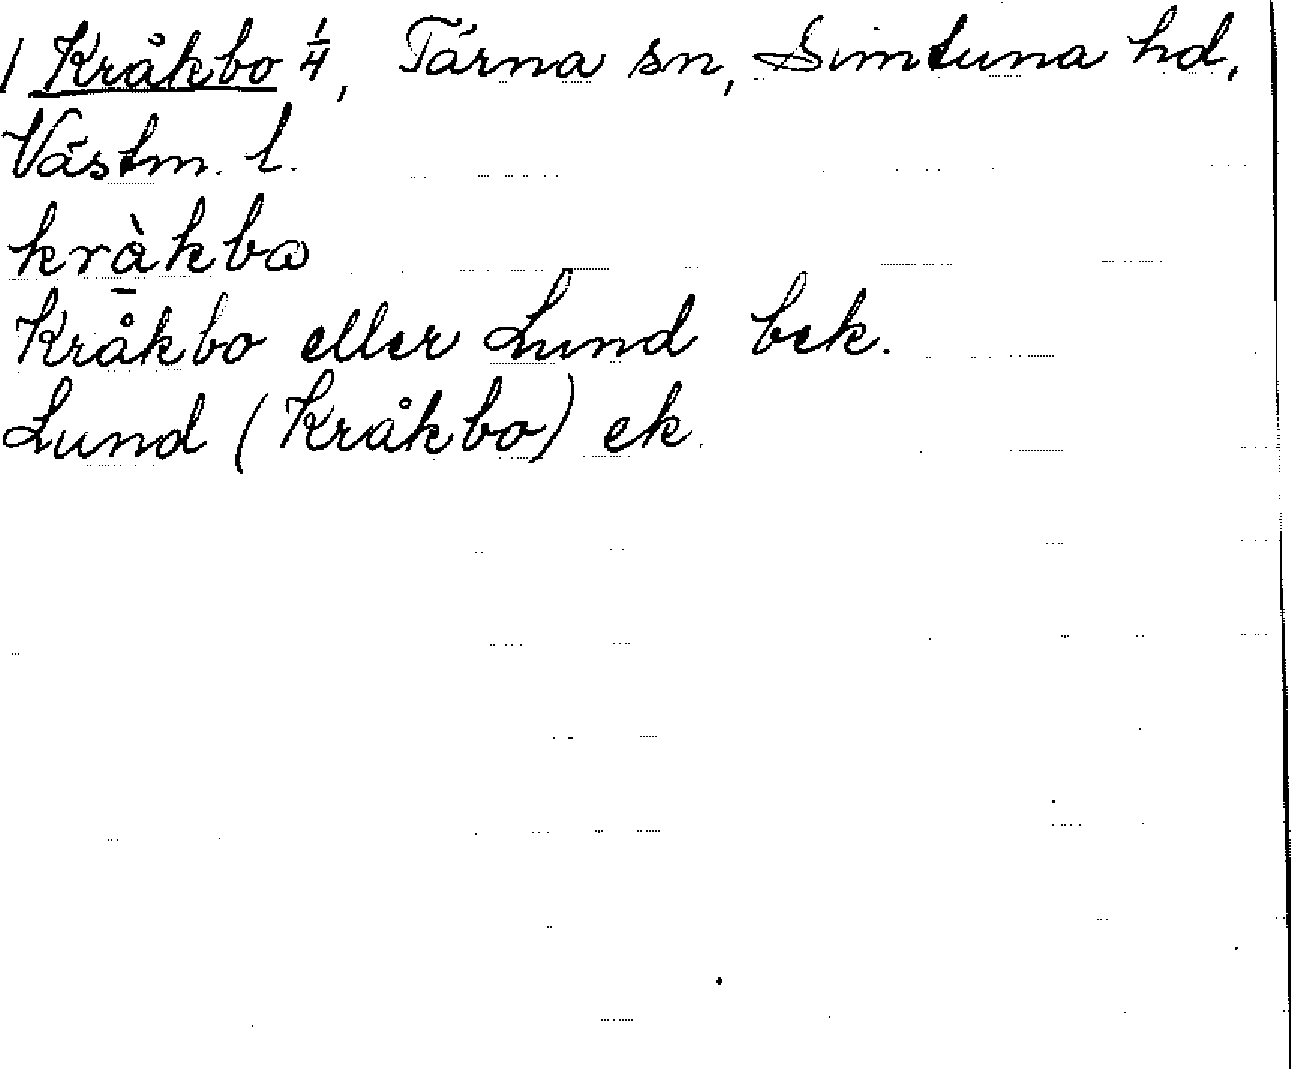 1 Kråkbo 1/4, Tärna sn, Simtuna hd,
Västm. l.
krà̱kbω
Kråkbo eller Lund bek.
Lund (Kråkbo) ek.